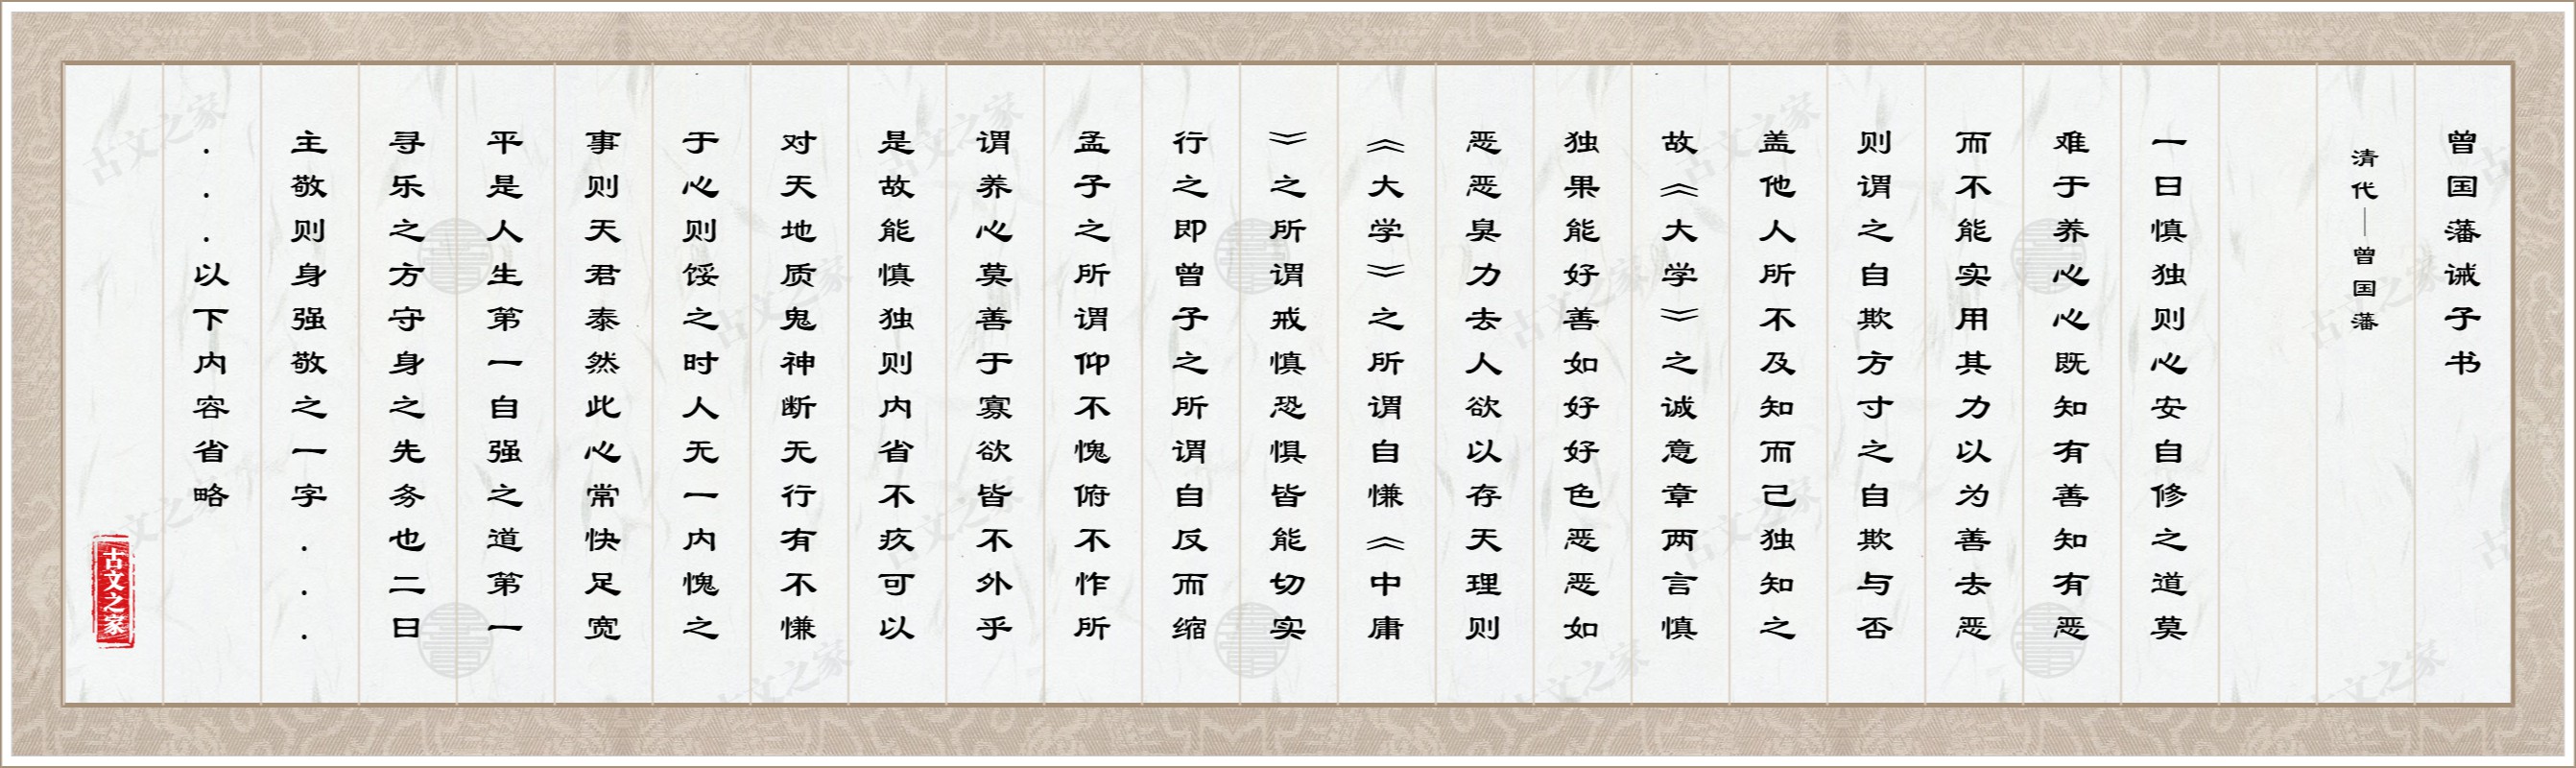 曾国藩诫子书
清代—曾国藩
一曰慎独则心安自修之道莫
难于养心心既知有善知有恶
而不能实用其力以为善去恶
则谓之自欺方寸之自欺与否
盖他人所不及知而己独知之
故《大学》之诚意章两言慎
独果能好善如好好色恶恶如
恶恶臭力去人欲以存天理则
《大学》之所谓自慊《中庸
》之所谓戒慎恐惧皆能切实
行之即曾子之所谓自反而缩
孟子之所谓仰不愧俯不怍所
谓养心莫善于寡欲皆不外乎
是故能慎独则内省不疚可以
对天地质鬼神断无行有不慊
于心则馁之时人无一内愧之
事则天君泰然此心常快足宽
平是人生第一自强之道第一
寻乐之方守身之先务也二曰
主敬则身强敬之一字...
...以下内容省略
古文之家